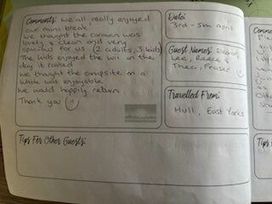 Comments: We all really enjoyed
our mini break
We thought the caravan was
lovely & clean and very
spacious for us (2 adults, 3 kids)
The kids enjoyed the wii on the
day it rained
We thought the campsite on a
whole was enjoyable
We would happily return
Thank you
Date:
3rd - 5th April
Guest Names:
Lee, Reece &
Theo, Fraser
Travelled From:
Hull, East Yorks
Tips For Other Guests: